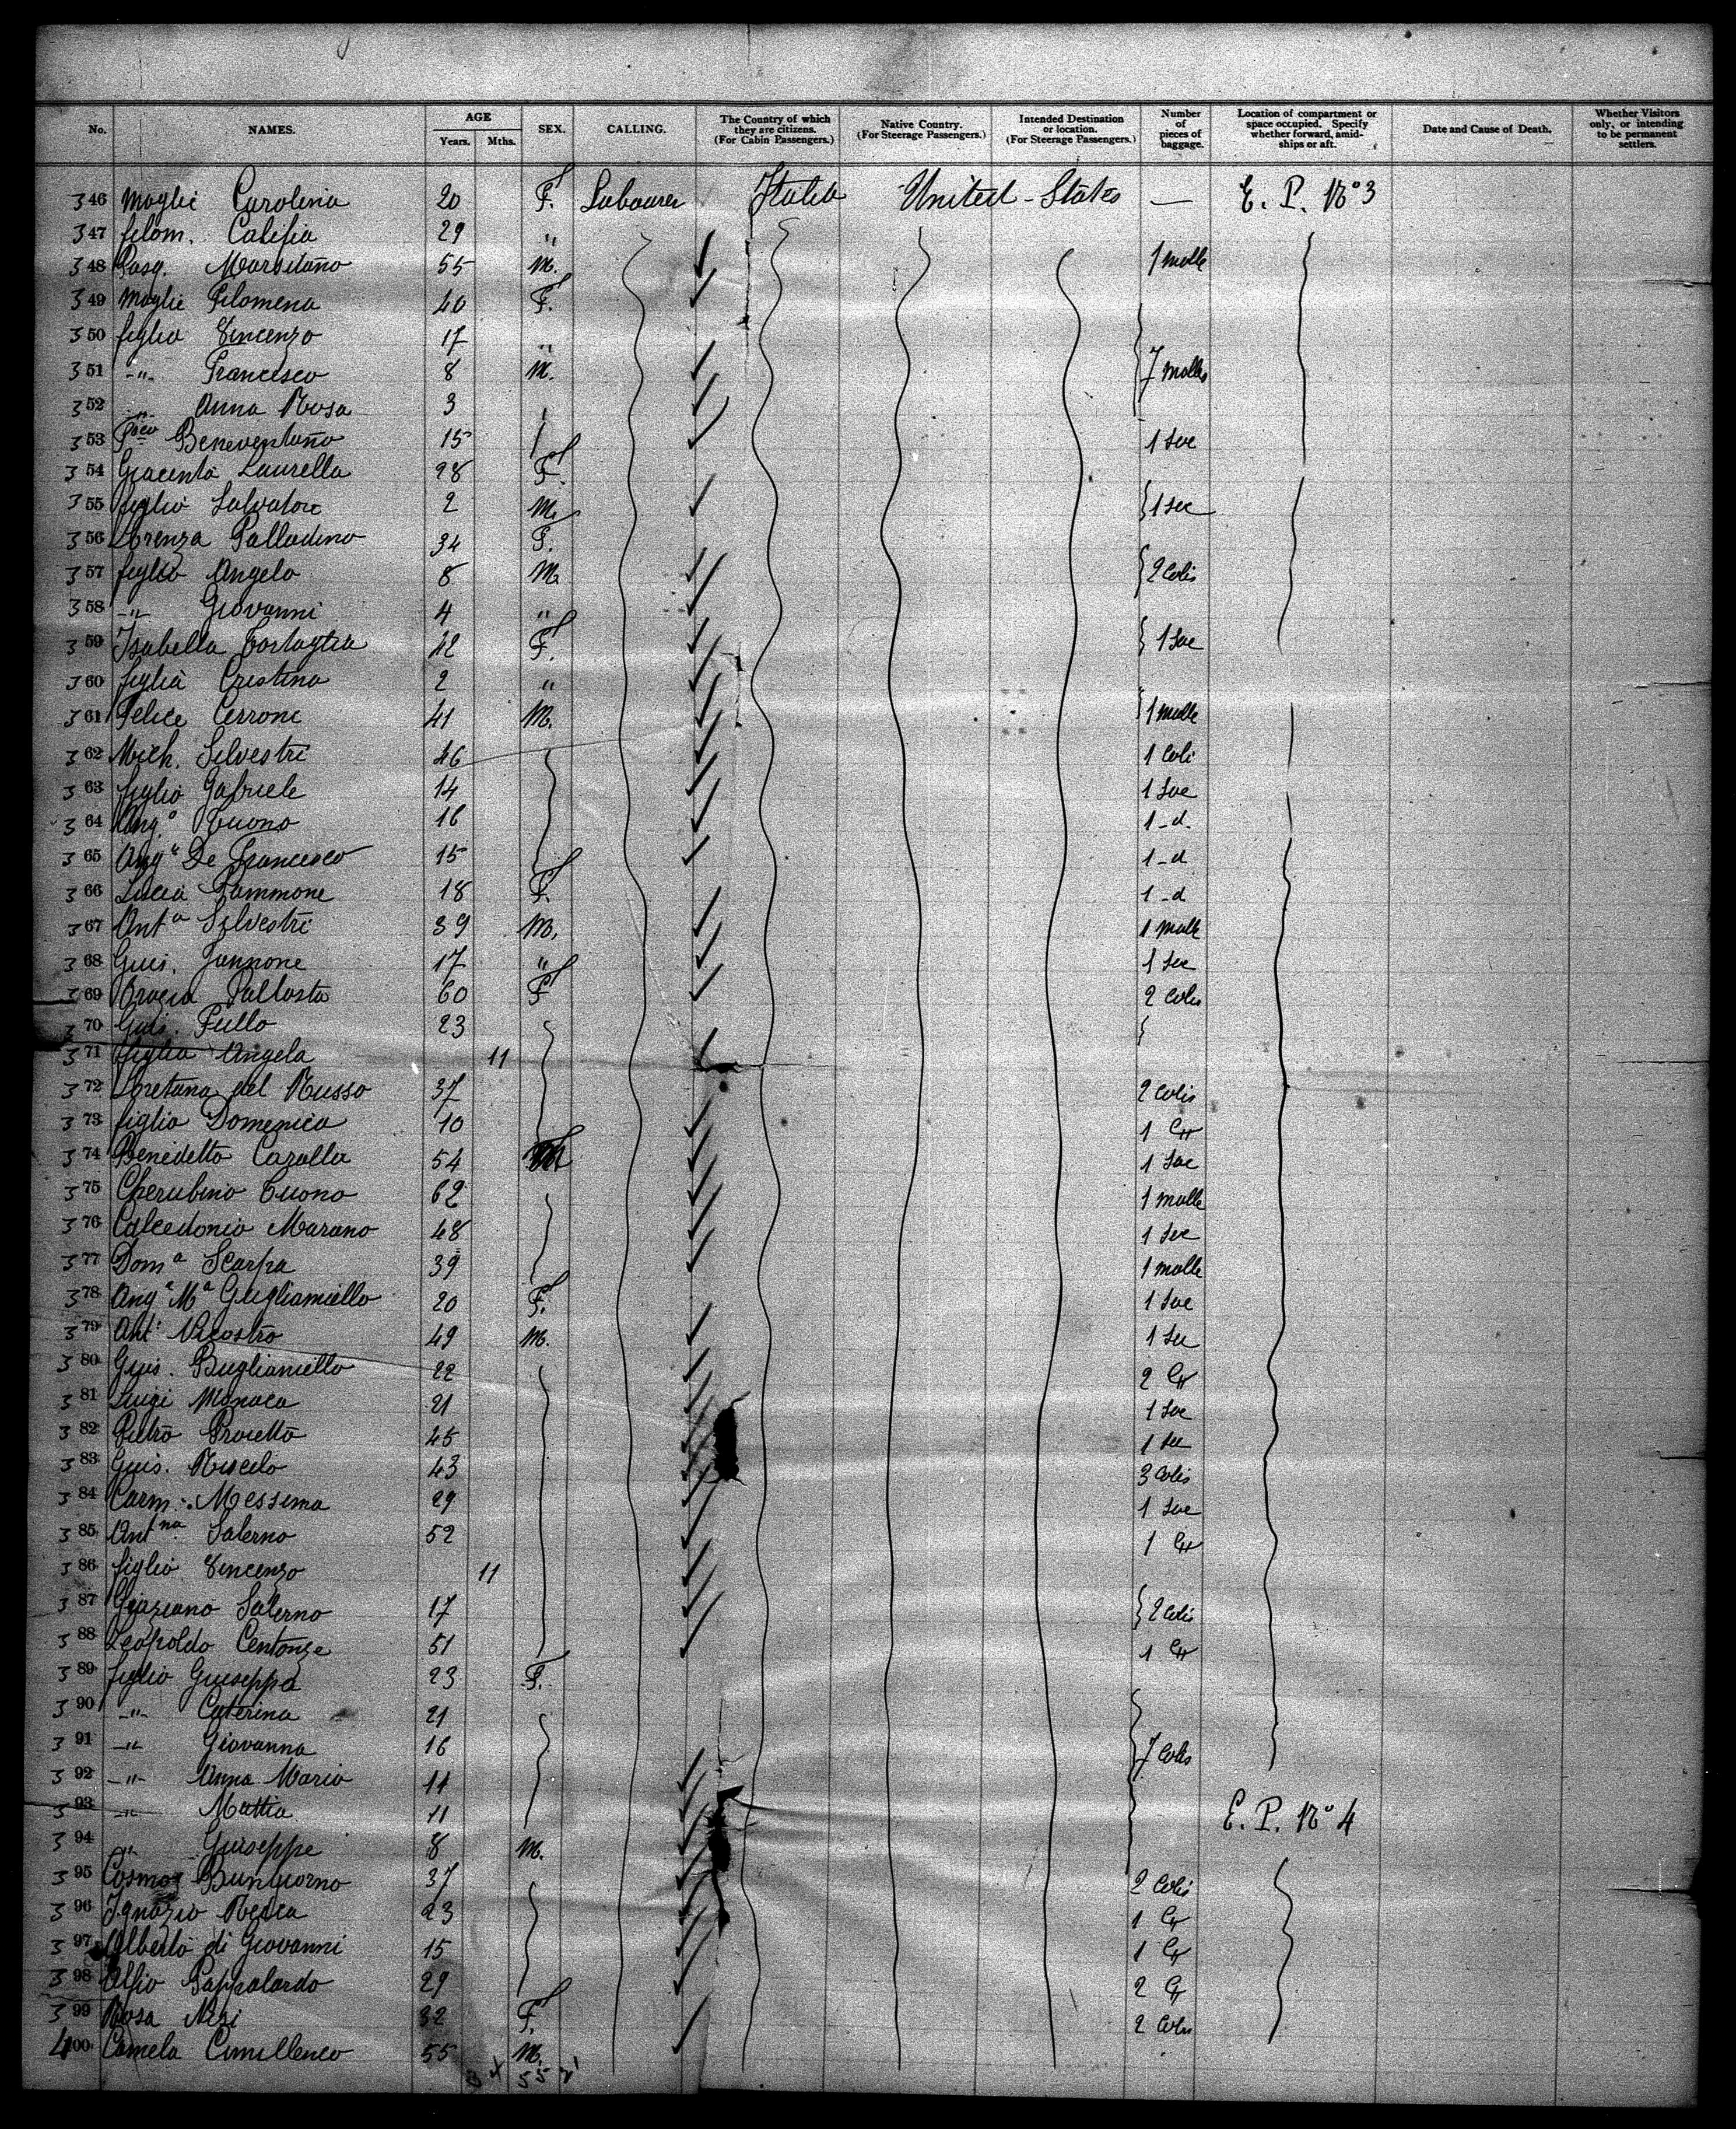 No. NAMES. AGE Years. Mths. SEX. CALLING. The Country of which they are citizens. (For Cabin Passengers.) Native Country. (For Steerage Passengers.) Intended Destination or location. (For Steerage Passengers.) Number of pieces of baggage. Location of compartment or space occupied. Specify whether forward, amidships or aft. Date and Cause of Death. Whether Visitors only, or intending to be permanent settlers.
346 Moglie Carolina 20 F. Labourer Italia United-States — E. P. No 3
347 filom. Califia 29 "
348 Pasq. 55 M. 1 malle
349 Moglie Filomena 40 F.
350 figlio Vincenzo 17 "
351 -"- Francesco 8 M. 7 malles
352 -"- Anna Rosa 3
353 Beneventano 15 1 Sac
354 Giacinta Laurella 28 F.
355 figlio Salvatore 2 M. 1 Sac
356 Lorenza Palladino 34 F.
357 figlio Angelo 8 M. 2 Colis
358 -"- Giovanni 4 "
359 Isabella 42 F. 1 Sac
360 figlia Cristina 2 "
361 Felice Cerrone 41 M. 1 malle
362 Mich. Silvestri 46 1 Coli
363 figlio Gabriele 14 1 Sac
364 Ang.o Tuono 16 1 -d.
365 Ang.o De Francesco 15 1 -d
366 Lucia 18 F. 1 -d
367 Ant.a Silvestri 39 M. 1 malle
368 Gius. Jannone 17 " 1 Sac
369 Grazia 60 F 2 Colis
370 Gius. Fullo 23
371 figlia Angela 11
372 Loretana del Russo 37 2 Colis
373 figlia Domenica 10 1
374 Benedetto Cazalla 54 1 Sac
375 Cherubino Tuono 62 1 malle
376 Calcedonio Marano 48 1 Sac
377 Dom.a Scarpa 39 1 malle
378 Ang.a M.a Guglianiello 20 F. 1 Sac
379 Ant. Nicastro 49 M. 1 Sac
380 Gius. Buglianiello 22 2
381 Luigi Monaca 21 1 Sac
382 Pietro Proietto 45 1 Sac
383 Gius. 43 3 Colis
384 Carm. Messima 29 1 Sac
385 Ant.na Salerno 52 1
386 figlio Vincenzo 11
387 Graziano Salerno 17 2 Colis
388 Leopoldo Centonze 51 1
389 figlio Giuseppa 23 F.
390 -"- Caterina 21
391 -"- Giovanna 16 7 Colis
392 -"- Anna Maria 11
393 -"- Mattia 11 E. P. No 4
394 -"- Giuseppe 8 M.
395 Cosmo Bunguorno 37 2 Colis
396 Ignazio 23 1
397 Alberto di Giovanni 15 1
398 Alfio Pappalardo 29 2
399 Rosa Nisi 32 F. 2 Colis
400 Camela 55 M.
55